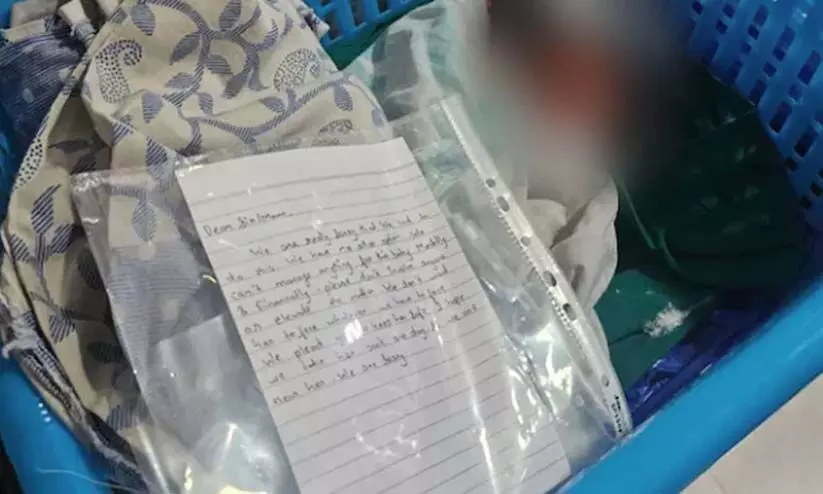 Dear Sir/Mam,
We are really sorry that We had to
do this. We have no other option. We
can't manage anything for this baby. Mentally
& Financially. please don't involve
or elevate make We don't want
her to face whatever we have to face
We plead you to keep her safe. I hope
we take her back one day & we are
near her. We are sorry